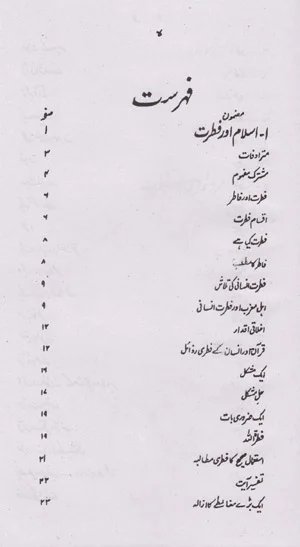 فہرست
مضمون صفحہ
۱۔ اسلام اور فطرت ۱
مترادفات ۳
مشترک مفہوم ۴
فطرت اور فاطر ۶
اقسام فطرت ۶
فطرت کیا ہے ۸
فاطر کا مطلب ۸
فطرت انسانی کی تلاش ۹
اہل مغرب اور فطرت انسانی ۹
اخلاقی اقدار ۱۲
قرآن اور انسان کے فطری رذائل ۱۲
ایک مشکل ۱۶
حل مشکل ۱۷
ایک ضروری بات ۱۹
فطرۃ اللہ ۱۹
استعمال صحیح کا فطری مطالبہ ۲۱
تفسیر آیت ۲۲
ایک بڑے مغالطے کا ازالہ ۲۳